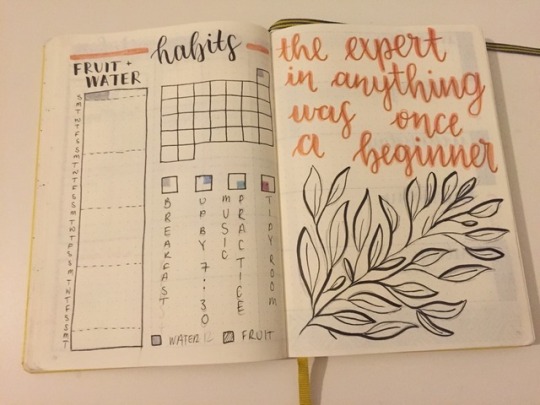 FRUIT +
WATER
habits
S
M
T
W
T
F
S
S
M
T
W
T
F
S
S
M
T
W
T
F
S
S
M
T
W
T
F
S
S
M
T
BREAKFAST
UP BY 7:30
MUSIC PRACTICE
TIDY ROOM
WATER
FRUIT
the expert
in anything
was once
a beginner